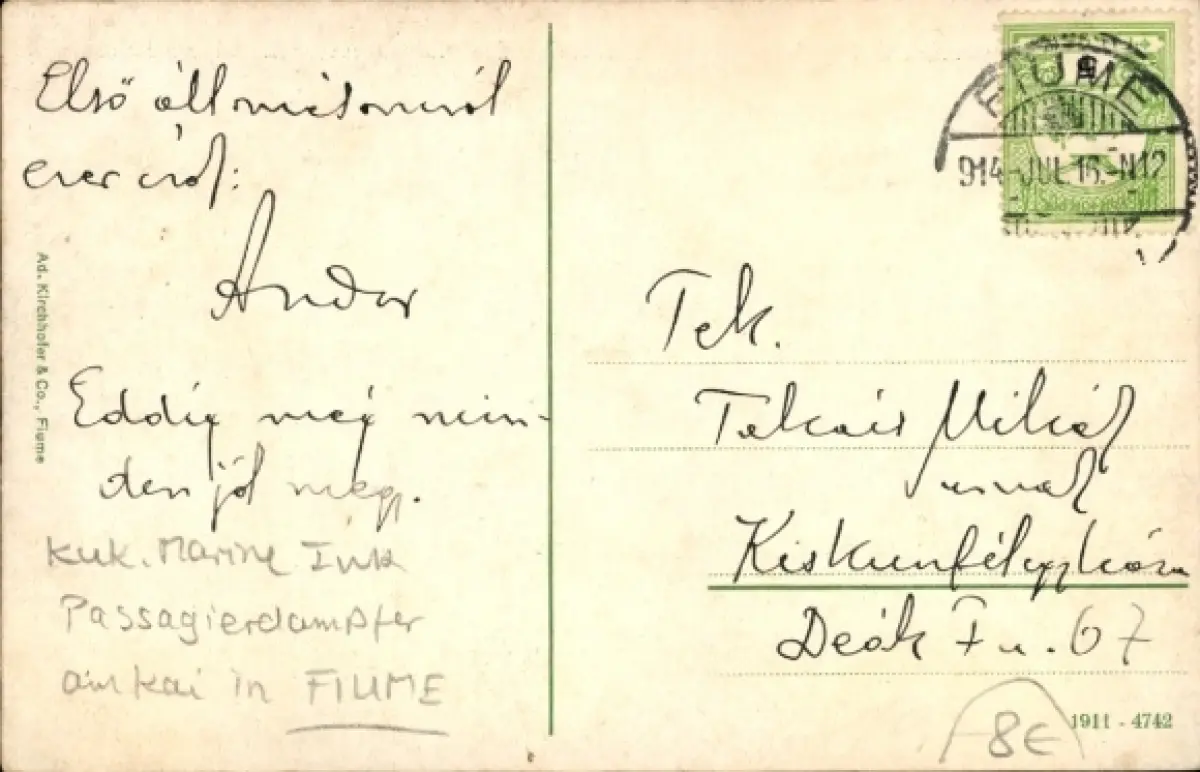 Első állomásomról
ezer csók:
Andor
Eddig még min-
den jól megy.
kuk. Marine
Passagierdampfer
am kai in FIUME
Ad. Kirchhofer & Co., Fiume
FIUME
914 JUL. 16.-N12
Tek.
Takács Mihály
urnak
Kiskunfélegyháza
Deák F. u. 67
8€
1911 - 4742